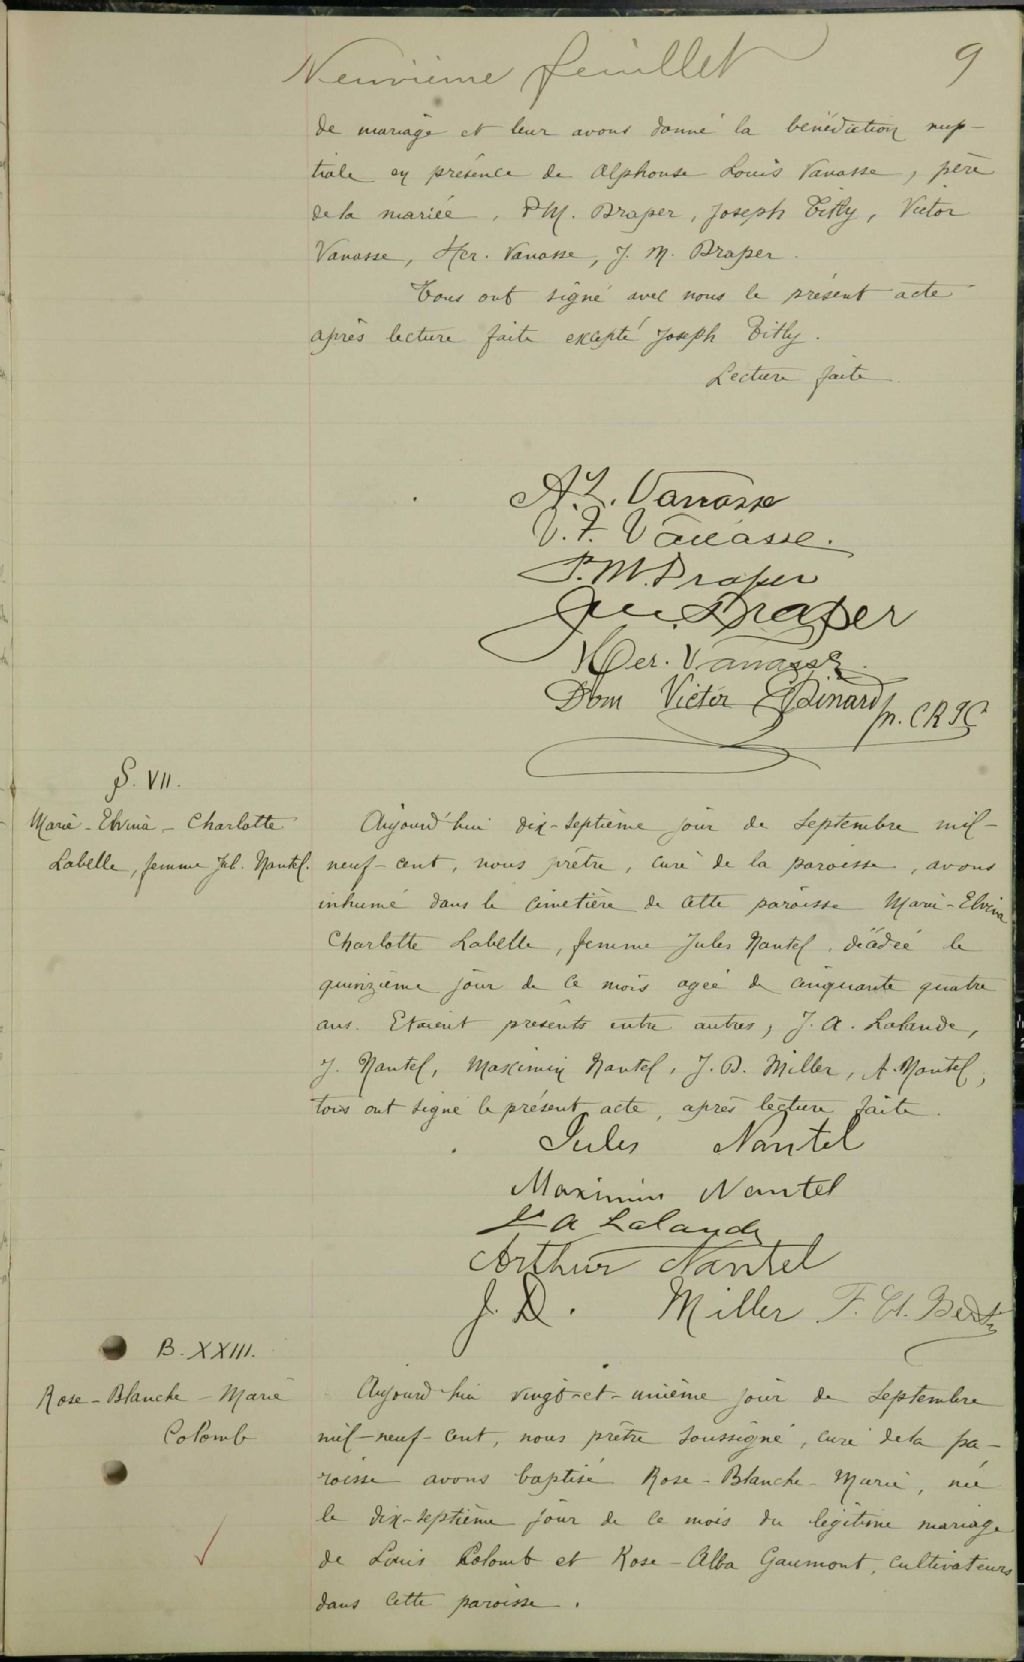 Neuvième feuillet 9
de mariage et leur avons donné la bénédiction nup-
tiale en présence de Alphonse Louis Vanasse, père
de la mariée, P.M. Draper, Joseph Titly, Victor
Vanasse, Her. Vanasse, J. M. Draper.
Tous ont signé avec nous le présent acte
après lecture faite excepté Joseph Titly.
Lecture faite
A. L. Vanasse
V. F. Vanasse.
P. M. Draper
Draper
Her. Vanasse.
Dom Victor
S. VII.
Marie-Elvina-Charlotte
Labelle, femme Jul. Nantel.
Aujourd'hui dix-septième jour de Septembre mil-
neuf-cent, nous prêtre, curé de la paroisse, avons
inhumé dans le cimetière de cette paroisse Marie-Elvina
Charlotte Labelle, femme Jules Nantel, décédée le
quinzième jour de ce mois agée de cinquante quatre
ans. Etaient présents entre autres, J. A. Lalande,
J. Nantel, Maximin Nantel, J. D. Miller, A. Nantel,
tous ont signé le présent acte, après lecture faite.
Jules Nantel
Maximin Nantel
J A Lalande
Arthur Nantel
J. D. Miller
B. XXIII.
Rose-Blanche-Marie
Colomb
Aujourd'hui vingt-et-unième jour de Septembre
mil-neuf-cent, nous prêtre soussigné, curé de la pa-
roisse avons baptisé Rose-Blanche-Marie, née
le dix-septième jour de ce mois du légitime mariage
de Louis Colomb et Rose-Alba Gaumont, cultivateurs
dans cette paroisse.